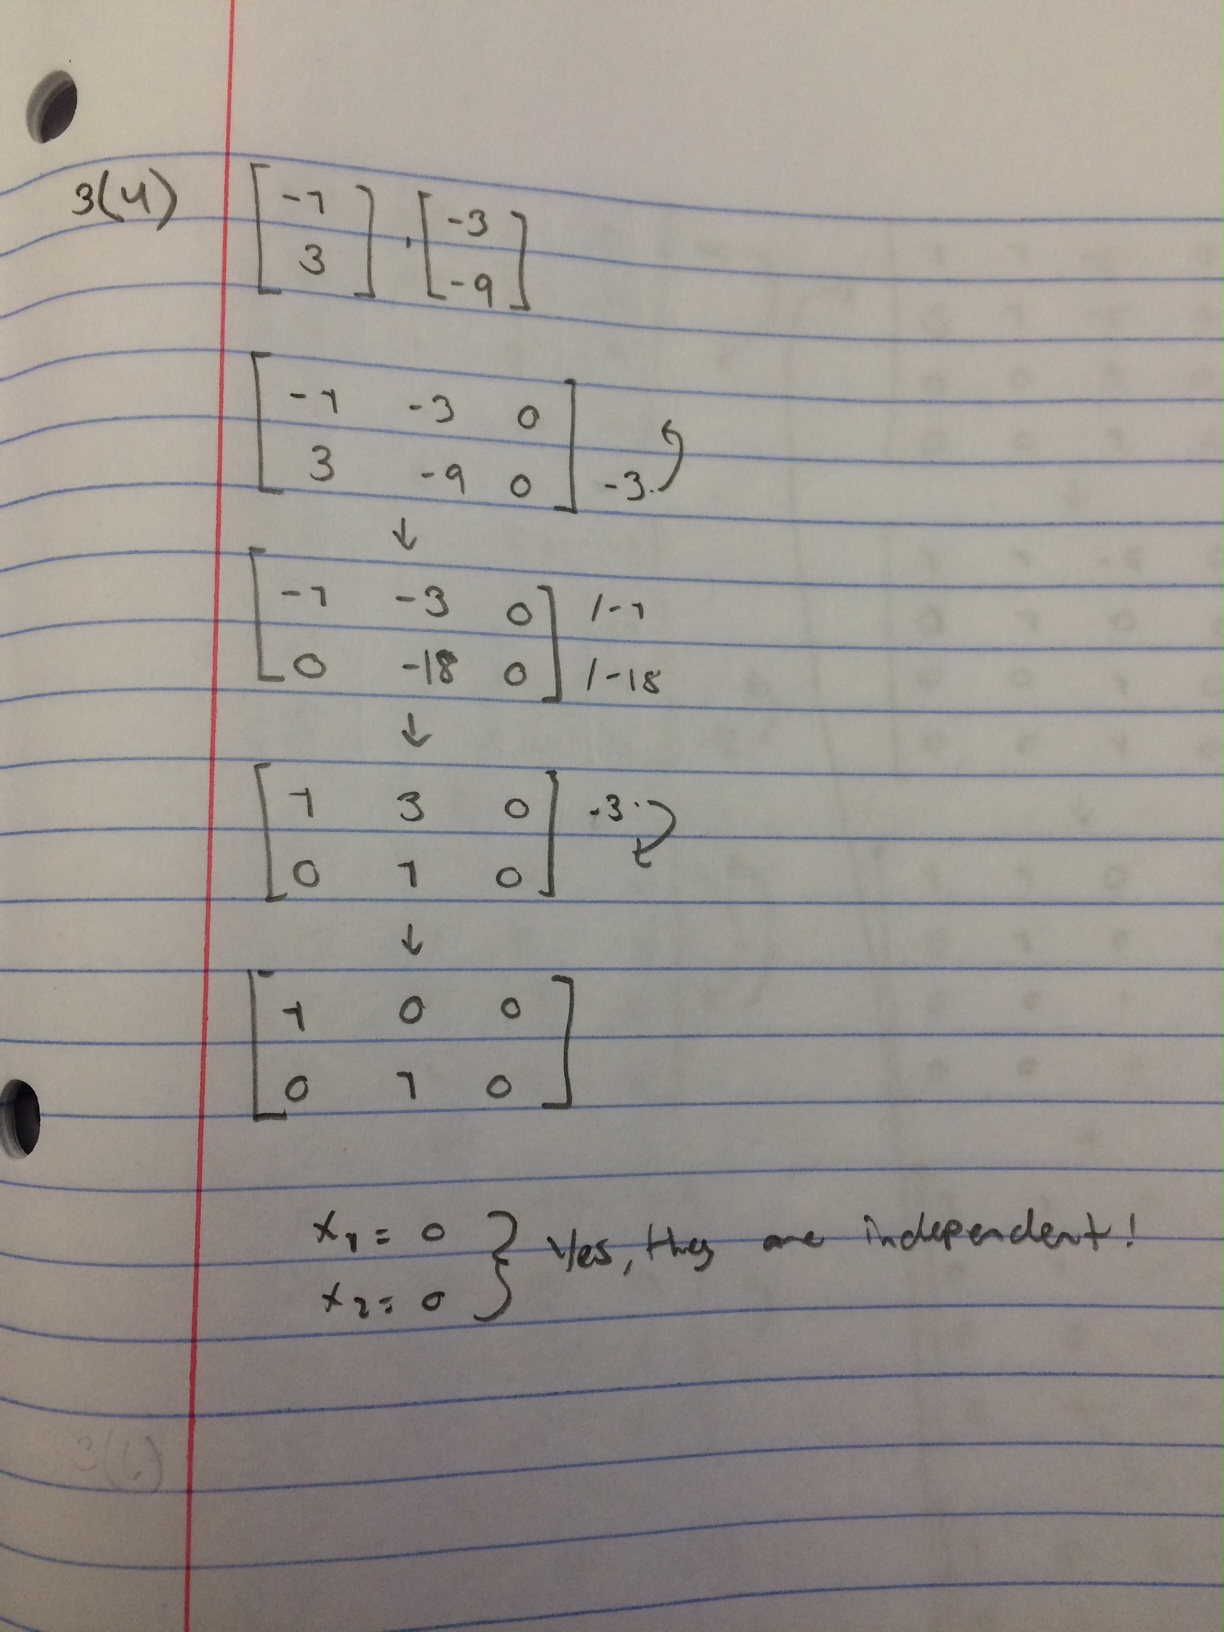 3(4) [-1 3] · [-3 -9]
[-1 -3 0
3 -9 0] -3·
↓
[-1 -3 0] /-1
[0 -18 0] /-18
↓
[1 3 0] -3·
[0 1 0]
↓
[1 0 0]
[0 1 0]
x₁ = 0 } Yes, they are independent!
x₂ = 0